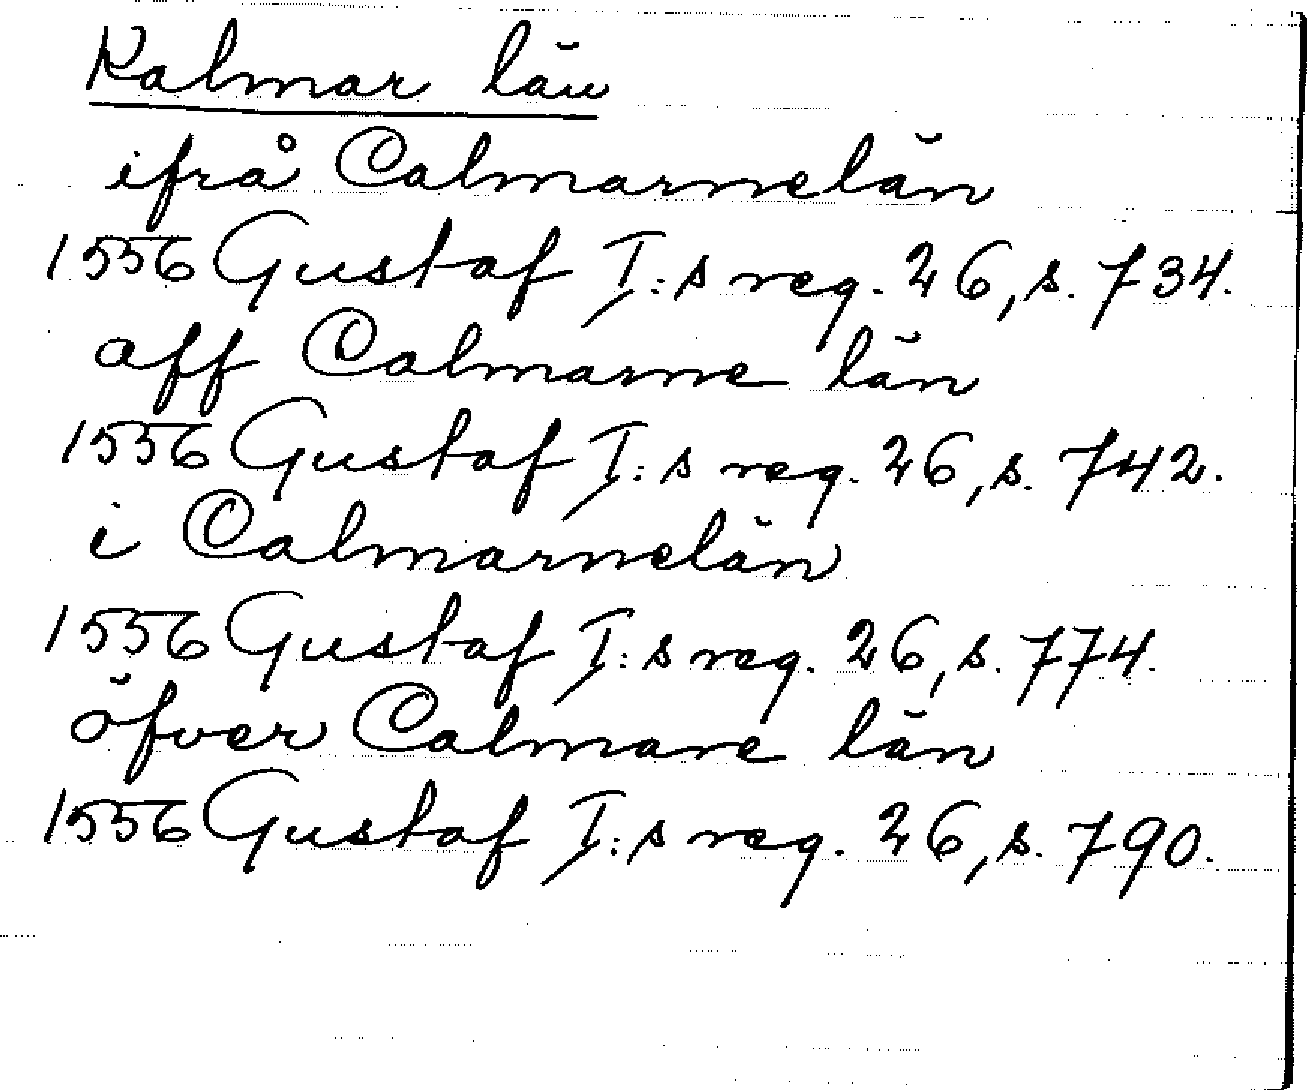 Kalmar län
ifrå Calmarnelän
1556 Gustaf I:s reg. 26, s. 734.
aff Calmarne län
1556 Gustaf I:s reg. 26, s. 742.
i Calmarnelän
1556 Gustaf I:s reg. 26, s. 774.
öfver Calmare län
1556 Gustaf I:s reg. 26, s. 790.